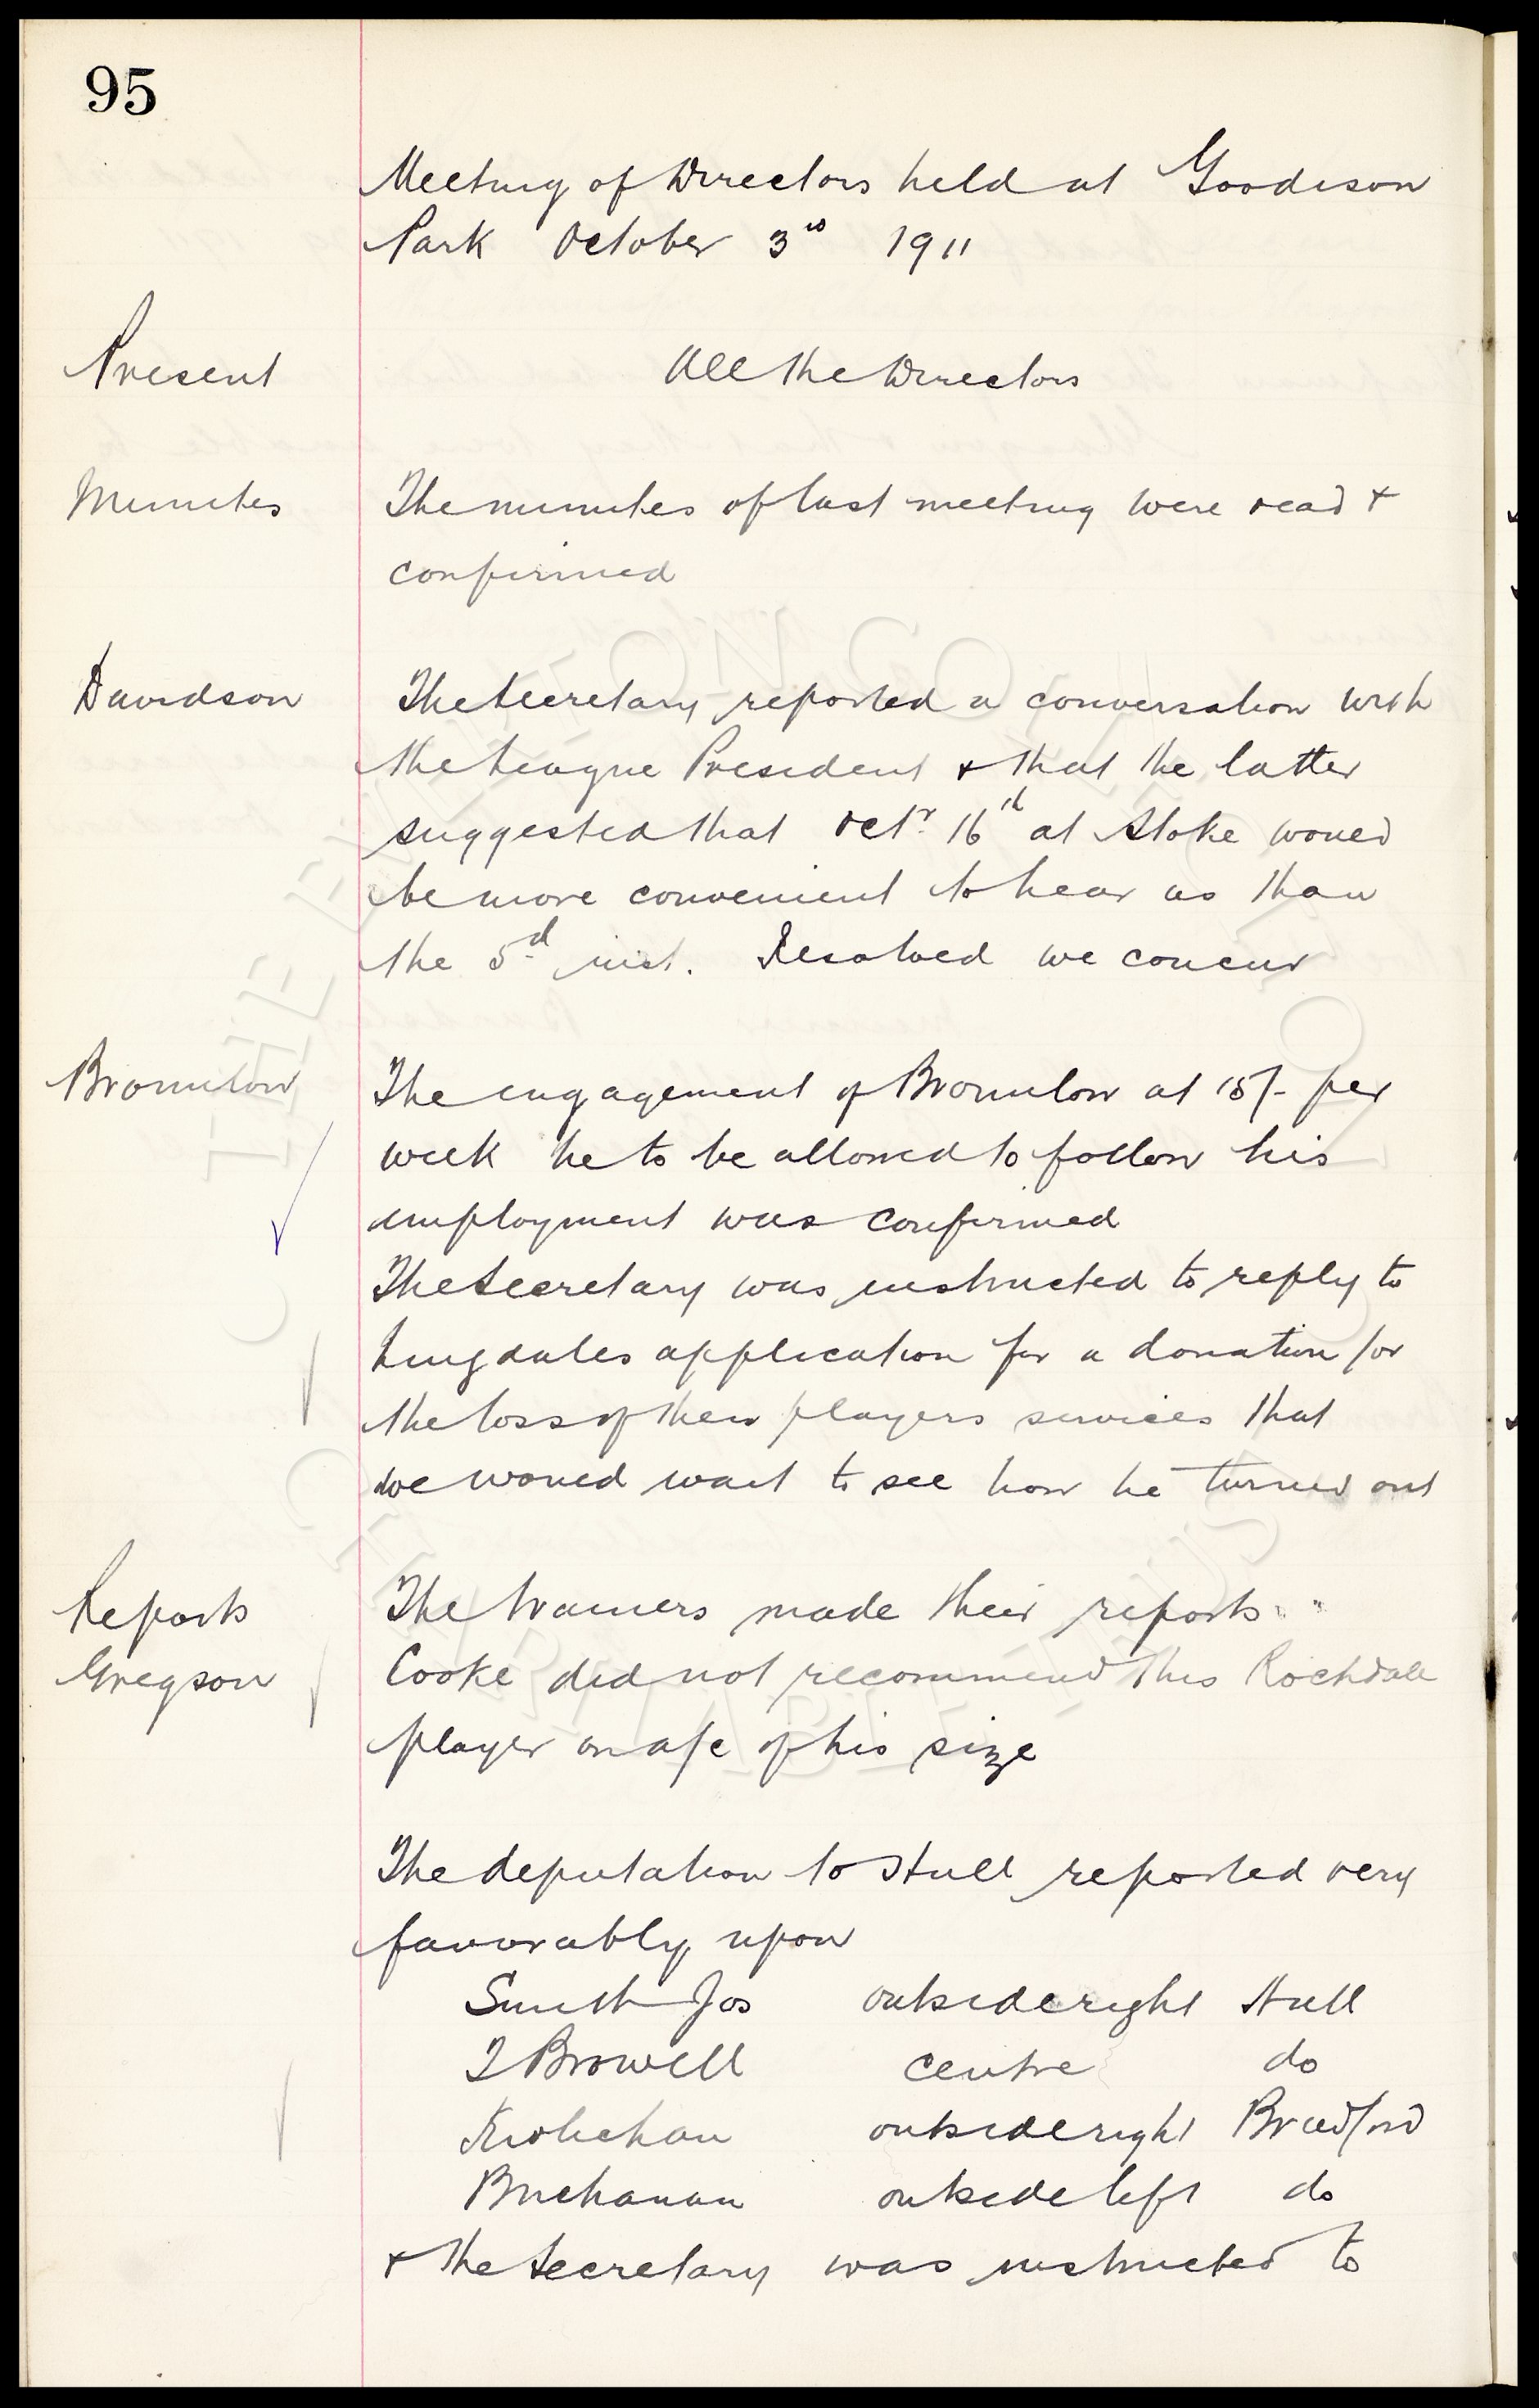 95
Meeting of Directors held at Goodison
Park October 3rd 1911
Present All the Directors
Minutes The minutes of last meeting were read &
confirmed
Davidson The Secretary reported a conversation with
the League President & that the latter
suggested that Octr. 16th at Stoke would
be more convenient to hear us than
the 5d inst. Resolved we concur
Bromilow The engagement of Bromilow at 15/- per
week he to be allowed to follow his
employment was confirmed
The Secretary was instructed to reply to
Lingdales application for a donation for
the loss of their players services that
we would wait to see how he turned out
Reports The trainers made their reports
Gregson Cooke did not recommend this Rochdale
player on a/c of his size
The deputation to Hull reported very
favorably upon
Smith Jos outside right Hull
T Browell centre do
outside right Bradford
Buchanan outside left do
& the Secretary was instructed to